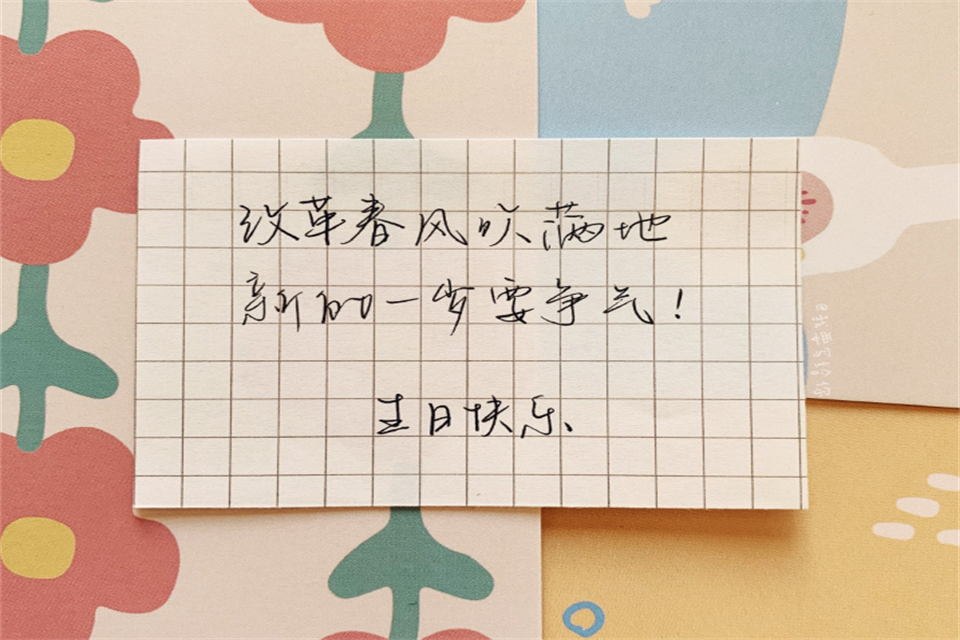 改革春风吹满地
新的一岁要争气!
生日快乐